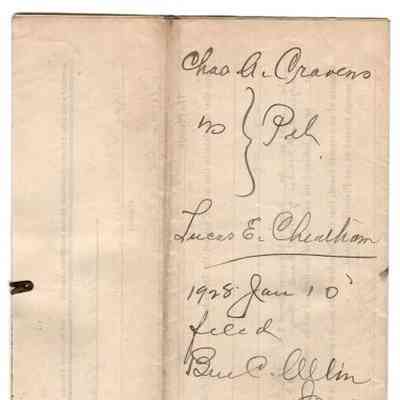 Chas A. Cravens
vs } Pet.
Lucas E. Cheatham
1928 Jan 10
filed
Ben C.